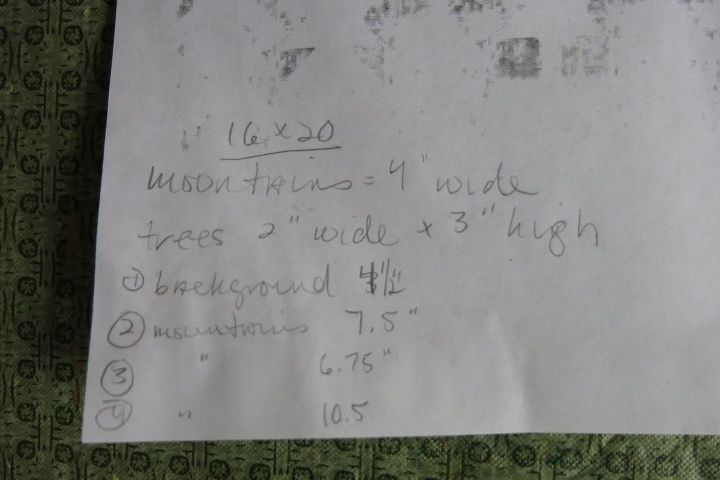 16 x 20
mountains = 4" wide
trees 2" wide x 3" high
① background 4½"
② mountains 7.5"
③ " 6.75"
④ " 10.5